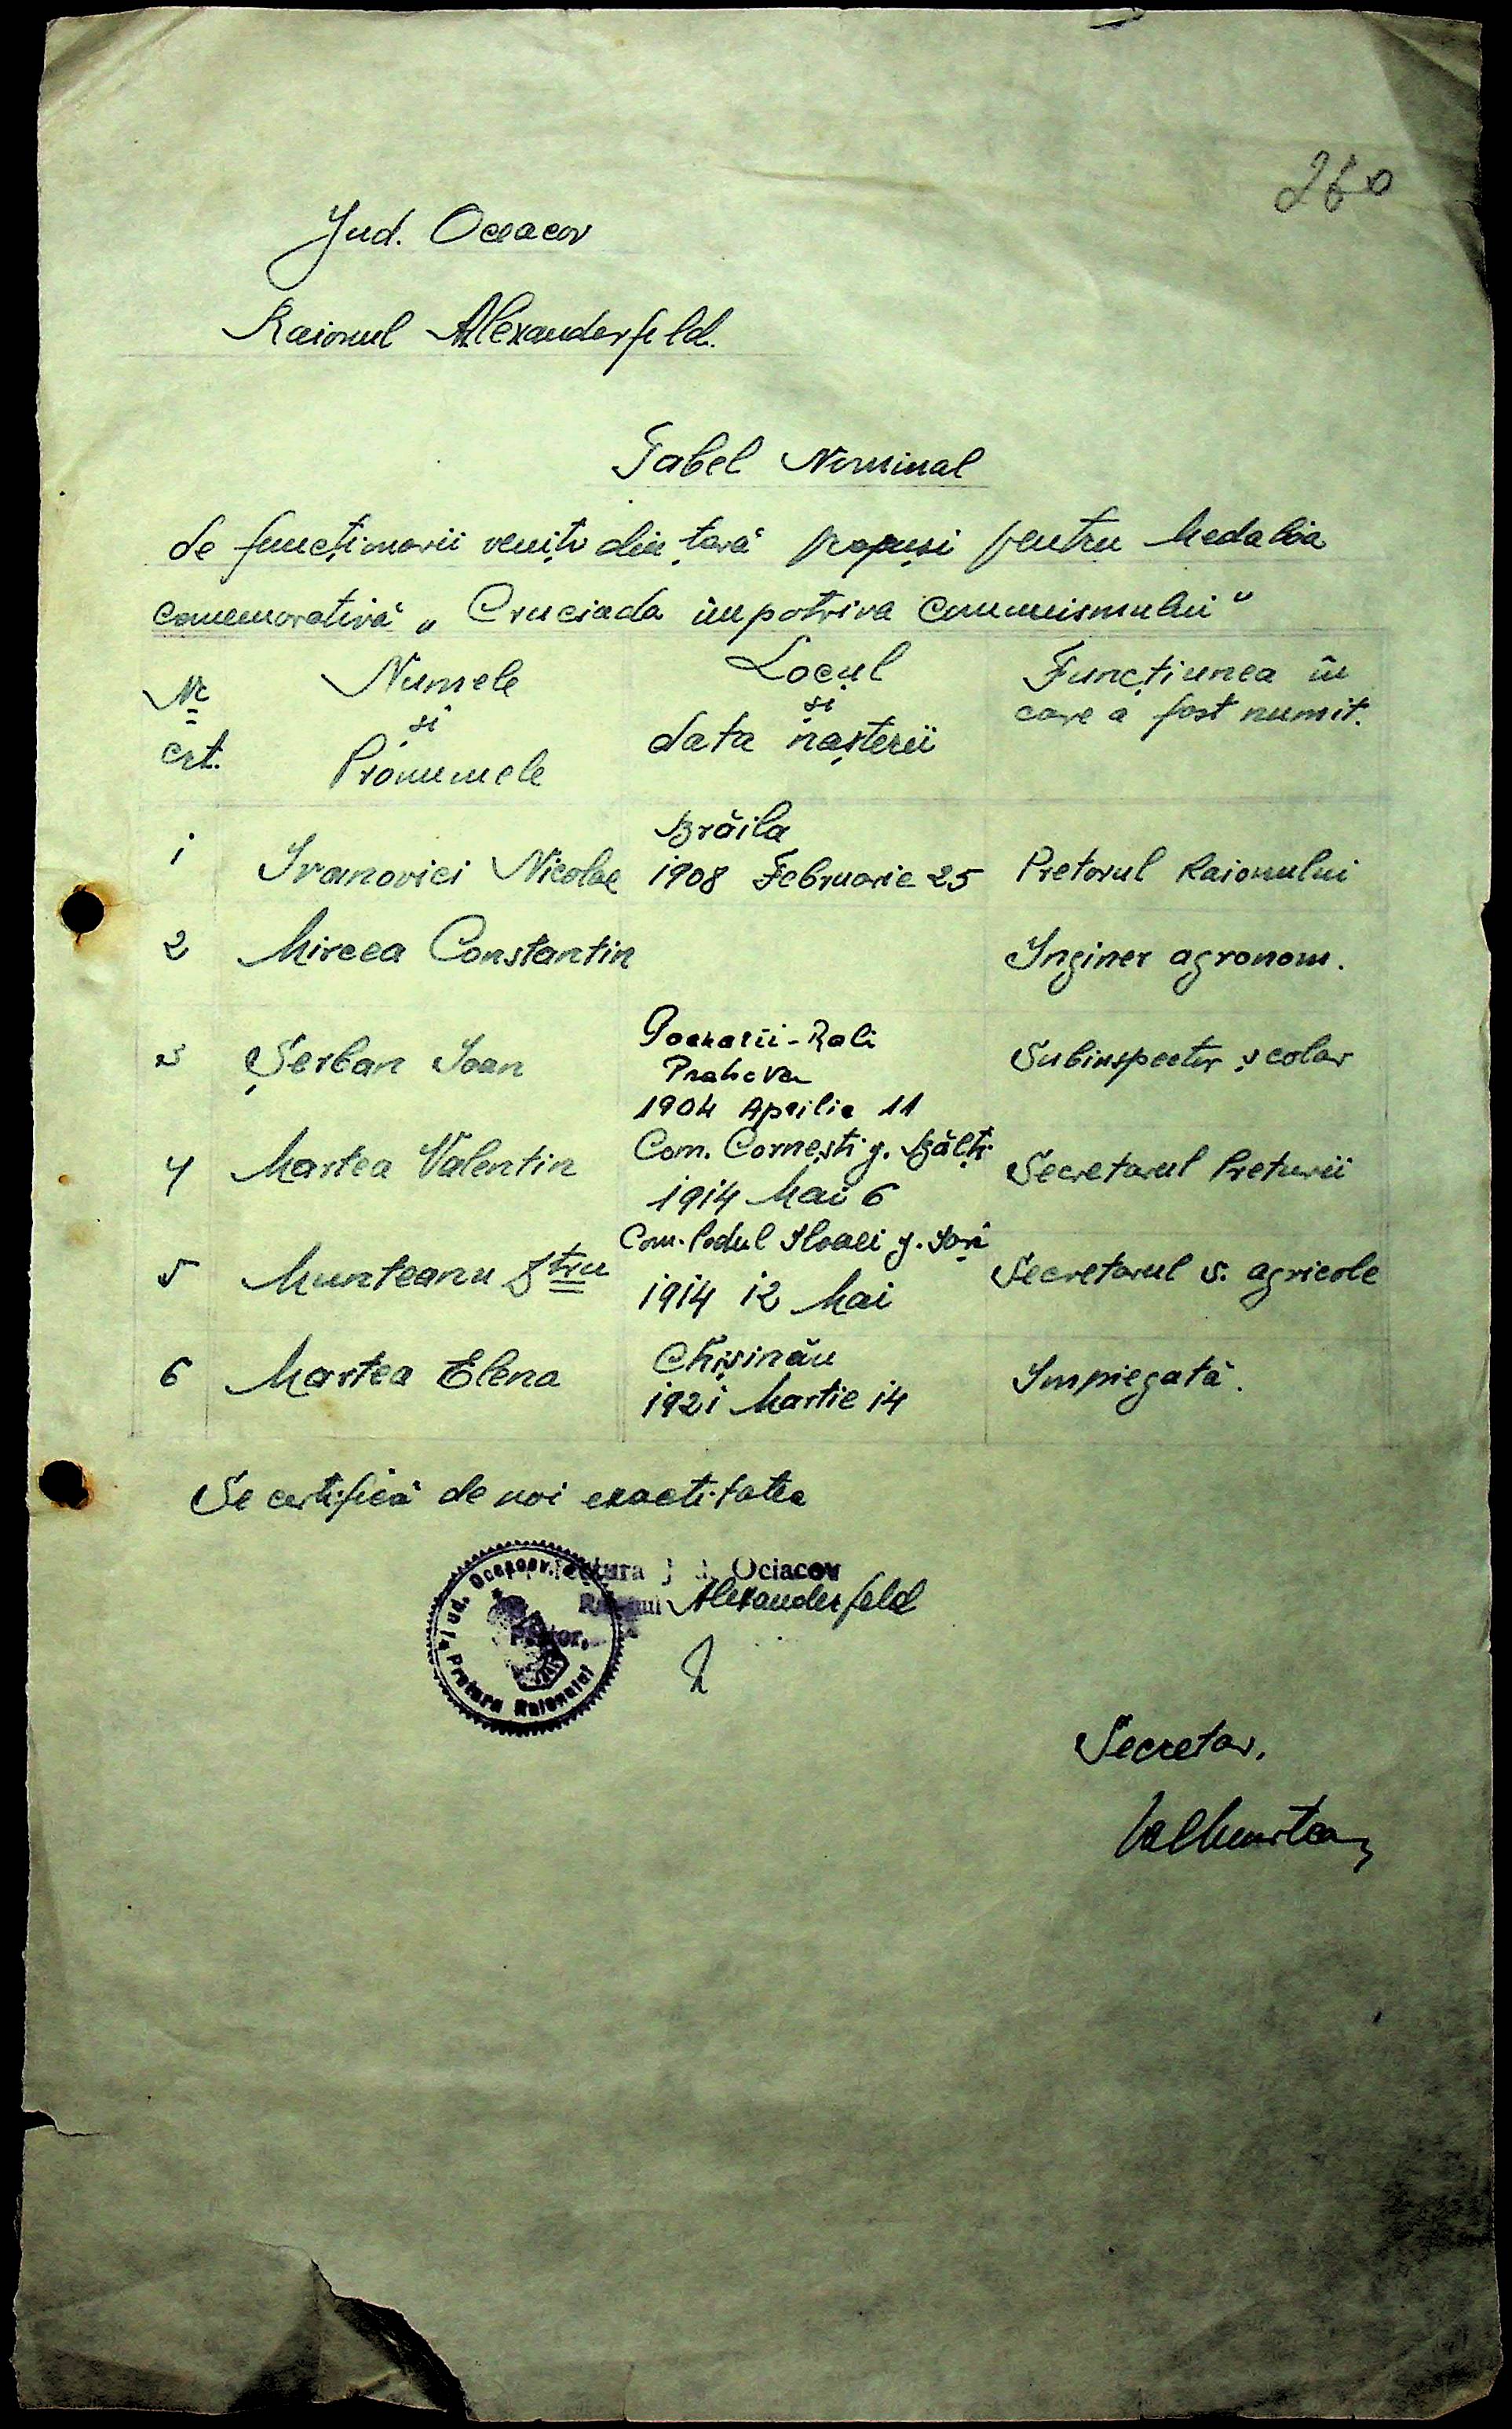 260
Jud. Oceacov
Raionul Alexanderfeld.
Tabel Nominal
de funcționarii veniți din țară propuși pentru Medalia
comemorativă „Cruciada împotriva comunismului"
Nr crt. Numele și Pronumele Locul și data nașterii Funcțiunea în care a fost numit.
1 Ivanovici Nicolae Brăila 1908 Februarie 25 Pretorul Raionului
2 Mircea Constantin Inginer agronom.
3 Șerban Ioan Poenarii-Rali Prahova 1904 Aprilie 11 Subinspector școlar
4 Martea Valentin Com. Cornești j. Bălți 1914 Mai 6 Secretarul Preturii
5 Munteanu Dtru Com. Podul Iloaei j. Iași 1914 12 Mai Secretarul s. agricole
6 Martea Elena Chișinău 1921 Martie 14 Impiegată.
Se certifică de noi exactitatea
Ociacov
Alexanderfeld
Jud. Oceacov
Pretura Raionului
Secretar,
ValMartea